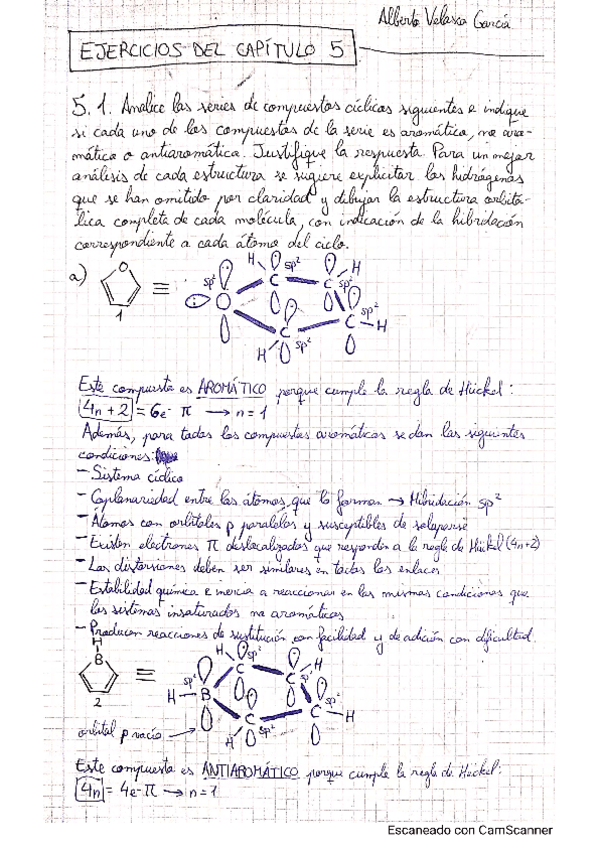 Alberto Velasco García
EJERCICIOS DEL CAPÍTULO 5
5.1. Analice las series de compuestos cíclicos siguientes e indique
si cada uno de los compuestos de la serie es aromático, no aro-
mático o antiaromático. Justifique la respuesta. Para un mejor
análisis de cada estructura se sugiere explicitar los hidrógenos
que se han omitido por claridad y dibujar la estructura orbitá-
lica completa de cada molécula, con indicación de la hibridación
correspondiente a cada átomo del ciclo.
a) O 1 ≡ sp² O H C sp² C H sp² C H sp² C H sp²
Este compuesto es AROMÁTICO porque cumple la regla de Hückel:
4n+2 = 6e⁻ π → n=1
Además, para todos los compuestos aromáticos se dan las siguientes
condiciones:
- Sistema cíclico
- Coplanariedad entre los átomos que lo forman → Hibridación sp²
- Átomos con orbitales p paralelos y susceptibles de solaparse
- Existen electrones π deslocalizados que responden a la regla de Hückel (4n+2)
- Las distorsiones deben ser similares en todos los enlaces
- Estabilidad química e inercia a reaccionar en las mismas condiciones que
los sistemas insaturados no aromáticos
- Producen reacciones de sustitución con facilidad y de adición con dificultad.
H B 2 ≡ H B sp² H C sp² C H sp² C H sp² C H sp²
orbital p vacío →
Este compuesto es ANTIAROMÁTICO porque cumple la regla de Hückel:
4n = 4e⁻ π → n=1
Escaneado con CamScanner